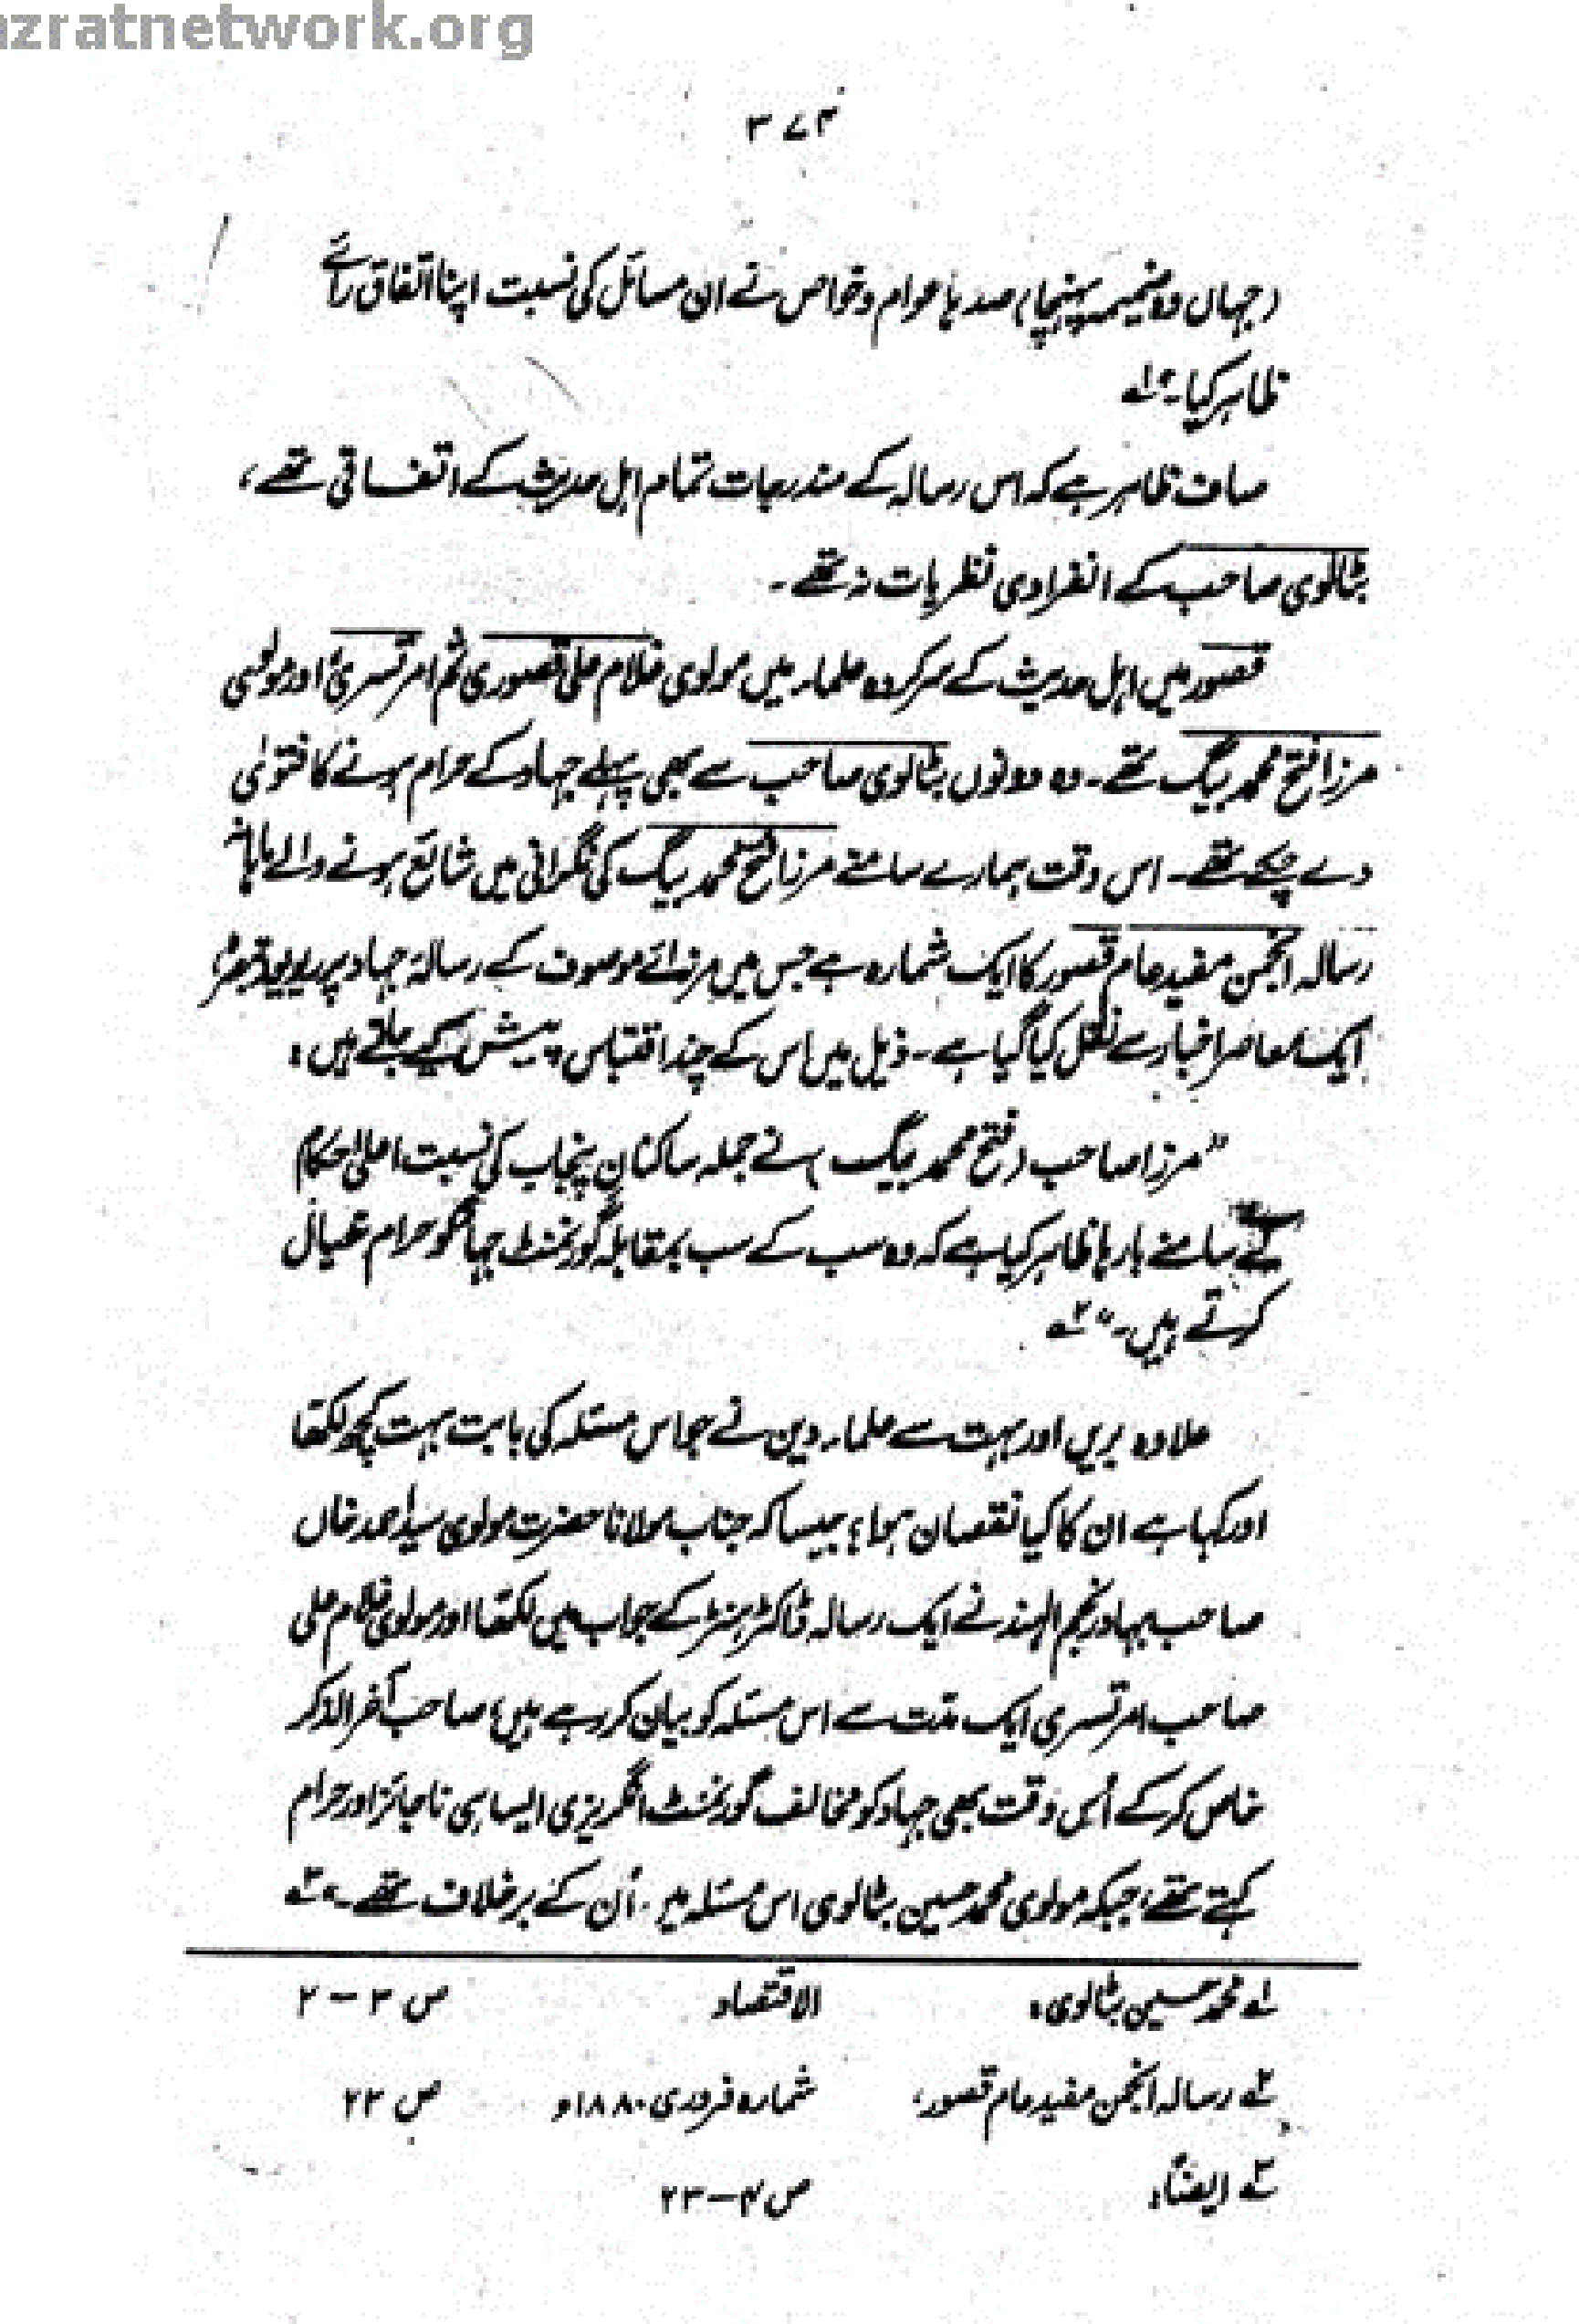 azratnetwork.org
۳۷۴
(جہاں وہ ضمیمہ پہنچا) صدہا عوام و خواص نے ان مسائل کی نسبت اپنا اتفاق رائے
ظاہر کیا۔" لے
صاف ظاہر ہے کہ اس رسالہ کے مندرجات تمام اہل حدیث کے اتفاقی تھے،
بٹالوی صاحب کے انفرادی نظریات نہ تھے ۔
قصور میں اہل حدیث کے سرکردہ علماء میں مولوی غلام علی قصوری ثم امرتسری اور مولوی
مرزا فتح محمد بیگ تھے۔ وہ دونوں بٹالوی صاحب سے بھی پہلے جہاد کے حرام ہونے کا فتویٰ
دے چکے تھے۔ اس وقت ہمارے سامنے مرزا فتح محمد بیگ کی نگرانی میں شائع ہونے والے ماہانہ
رسالہ انجمن مفید عام قصور کا ایک شمارہ ہے جس میں مرزائے موصوف کے رسالۂ جہاد پر ریویو (تبصرہ)
ایک معاصر اخبار سے نقل کیا گیا ہے ۔ ذیل میں اس کے چند اقتباس پیش کیے جاتے ہیں :
"مرزا صاحب (فتح محمد بیگ) نے جملہ ساکنانِ پنجاب کی نسبت اعلیٰ حکام
کے سامنے بارہا ظاہر کیا ہے کہ وہ سب کے سب بمقابلہ گورنمنٹ جہاد کو حرام خیال
کرتے ہیں۔" ۲ے
علاوہ بریں اور بہت سے علماء دین نے جو اس مسئلہ کی بابت بہت کچھ لکھا
اور کہا ہے ان کا کیا نقصان ہوا؟ جیسا کہ جناب مولانا حضرت مولوی سید احمد خاں
صاحب بہادر نجم الہند نے ایک رسالہ ڈاکٹر ہنٹر کے جواب میں لکھا اور مولوی غلام علی
صاحب امرتسری ایک مدت سے اس مسئلہ کو بیان کر رہے ہیں، صاحب آخر الذکر
خاص کر کے اُس وقت بھی جہاد کو مخالف گورنمنٹ انگریزی ایسا ہی ناجائز اور حرام
کہتے تھے، جبکہ مولوی محمد حسین بٹالوی اس مسئلہ میں اُن کے برخلاف تھے۔" ۳ے
لے محمد حسین بٹالوی، الاقتصاد ص ۳ – ۲
۲ے رسالہ انجمن مفید عام قصور، شمارہ فروری ۱۸۸۰ء ص ۲۳
۳ے ایضاً، ص ۴–۲۳